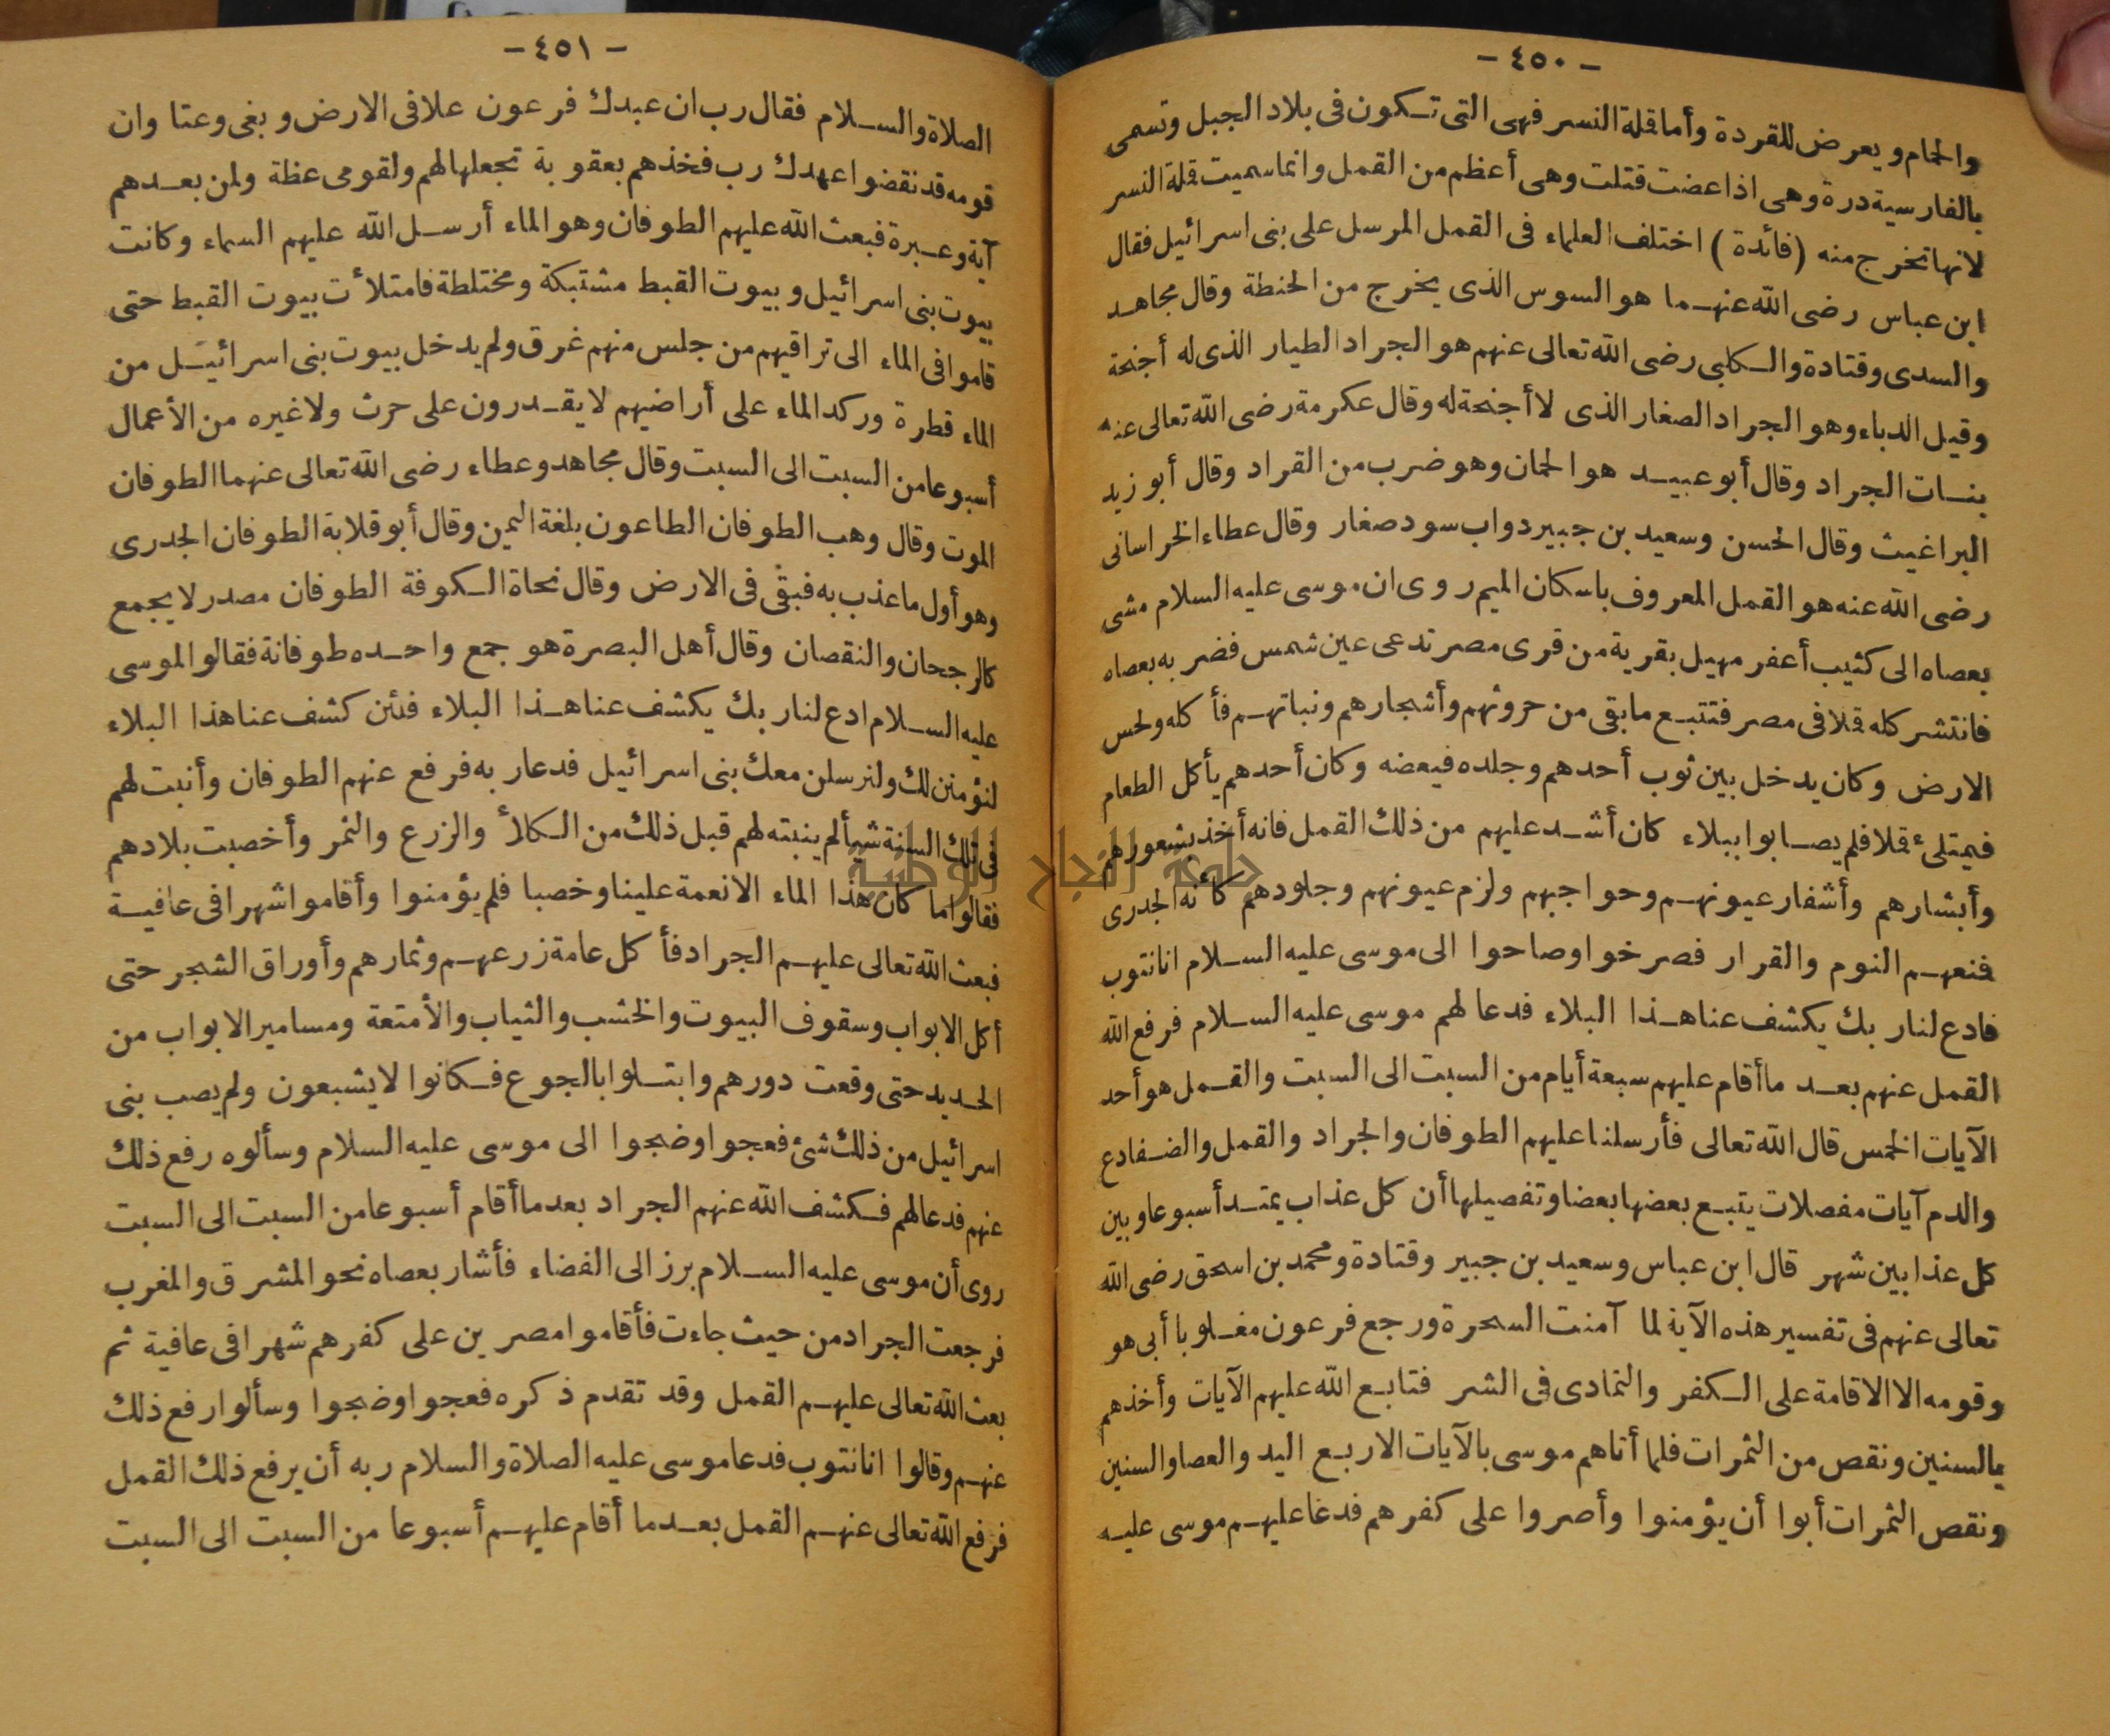 - ٤٥٠ -
والحمام ويعرض للقردة وأما قلة النسر فهى التى تكون فى بلاد الجبل وتسمى
بالفارسية درة وهى اذا عضت قتلت وهى أعظم من القمل وانما سميت قلة النسر
لانها تخرج منه (فائدة) اختلف العلماء فى القمل المرسل على بنى اسرائيل فقال
ابن عباس رضى الله عنهما هو السوس الذى يخرج من الحنطة وقال مجاهد
والسدى وقتادة والكلبى رضى الله تعالى عنهم هو الجراد الطيار الذى له أجنحة
وقيل الدباء وهو الجراد الصغار الذى لا أجنحة له وقال عكرمة رضى الله تعالى عنه
بنات الجراد وقال أبو عبيد هو الحمنان وهو ضرب من القراد وقال أبو زيد
البراغيث وقال الحسن وسعيد بن جبير دواب سود صغار وقال عطاء الخراسانى
رضى الله عنه هو القمل المعروف باسكان الميم روى ان موسى عليه السلام مشى
بعصاه الى كثيب أعفر مهيل بقرية من قرى مصر تدعى عين شمس فضربه بعصاه
فانتشر كله قملا فى مصر فتتبع ما بقى من حروثهم وأشجارهم ونباتهم فأكله ولحس
الارض وكان يدخل بين ثوب أحدهم وجلده فيعضه وكان أحدهم يأكل الطعام
فيمتلئ قملا فلم يصابوا ببلاء كان أشد عليهم من ذلك القمل فانه أخذ بشعورهم
وأبشارهم وأشفار عيونهم وحواجبهم ولزم عيونهم وجلودهم كأنه الجدرى
فمنعهم النوم والقرار فصرخوا وصاحوا الى موسى عليه السلام انا نتوب
فادع لنا ربك يكشف عنا هذا البلاء فدعا لهم موسى عليه السلام فرفع الله
القمل عنهم بعد ما أقام عليهم سبعة أيام من السبت الى السبت والقمل هو أحد
الآيات الخمس قال الله تعالى فأرسلنا عليهم الطوفان والجراد والقمل والضفادع
والدم آيات مفصلات يتبع بعضها بعضا وتفصيلها أن كل عذاب يمتد أسبوعا وبين
كل عذابين شهر قال ابن عباس وسعيد بن جبير وقتادة ومحمد بن اسحق رضى الله
تعالى عنهم فى تفسير هذه الآية لما آمنت السحرة ورجع فرعون مغلوبا أبى هو
وقومه الا الاقامة على الكفر والتمادى فى الشر فتابع الله عليهم الآيات وأخذهم
بالسنين ونقص من الثمرات فلما أتاهم موسى بالآيات الاربع اليد والعصا والسنين
ونقص الثمرات أبوا أن يؤمنوا وأصروا على كفرهم فدعا عليهم موسى عليه
- ٤٥١ -
الصلاة والسلام فقال رب ان عبدك فرعون علا فى الارض وبغى وعتا وان
قومه قد نقضوا عهدك رب فخذهم بعقوبة تجعلها لهم ولقومى عظة ولمن بعدهم
آية وعبرة فبعث الله عليهم الطوفان وهو الماء أرسل الله عليهم السماء وكانت
بيوت بنى اسرائيل وبيوت القبط مشتبكة ومختلطة فامتلأت بيوت القبط حتى
قاموا فى الماء الى تراقيهم من جلس منهم غرق ولم يدخل بيوت بنى اسرائيل من
الماء قطرة وركد الماء على أراضيهم لا يقدرون على حرث ولا غيره من الأعمال
أسبوعا من السبت الى السبت وقال مجاهد وعطاء رضى الله تعالى عنهما الطوفان
الموت وقال وهب الطوفان الطاعون بلغة اليمن وقال أبو قلابة الطوفان الجدرى
وهو أول ما عذب به فبقى فى الارض وقال نحاة الكوفة الطوفان مصدر لا يجمع
كالرجحان والنقصان وقال أهل البصرة هو جمع واحده طوفانة فقالوا لموسى
عليه السلام ادع لنا ربك يكشف عنا هذا البلاء فئن كشف عنا هذا البلاء
لنؤمنن لك ولنرسلن معك بنى اسرائيل فدعا ربه فرفع عنهم الطوفان وأنبت لهم
فى تلك السنة شيأ لم ينبته لهم قبل ذلك من الكلأ والزرع والثمر وأخصبت بلادهم
فقالوا ما كان هذا الماء الا نعمة علينا وخصبا فلم يؤمنوا وأقاموا شهرا فى عافية
فبعث الله تعالى عليهم الجراد فأكل عامة زرعهم وثمارهم وأوراق الشجر حتى
أكل الابواب وسقوف البيوت والخشب والثياب والأمتعة ومسامير الابواب من
الحديد حتى وقعت دورهم وابتلوا بالجوع فكانوا لا يشبعون ولم يصب بنى
اسرائيل من ذلك شئ فعجوا وضجوا الى موسى عليه السلام وسألوه رفع ذلك
عنهم فدعا لهم فكشف الله عنهم الجراد بعد ما أقام أسبوعا من السبت الى السبت
روى أن موسى عليه السلام برز الى الفضاء فأشار بعصاه نحو المشرق والمغرب
فرجعت الجراد من حيث جاءت فأقاموا مصرين على كفرهم شهرا فى عافية ثم
بعث الله تعالى عليهم القمل وقد تقدم ذكره فعجوا وضجوا وسألوا رفع ذلك
عنهم وقالوا انا نتوب فدعا موسى عليه الصلاة والسلام ربه أن يرفع ذلك القمل
فرفع الله تعالى عنهم القمل بعد ما أقام عليهم أسبوعا من السبت الى السبت
جامعة النجاح الوطنية